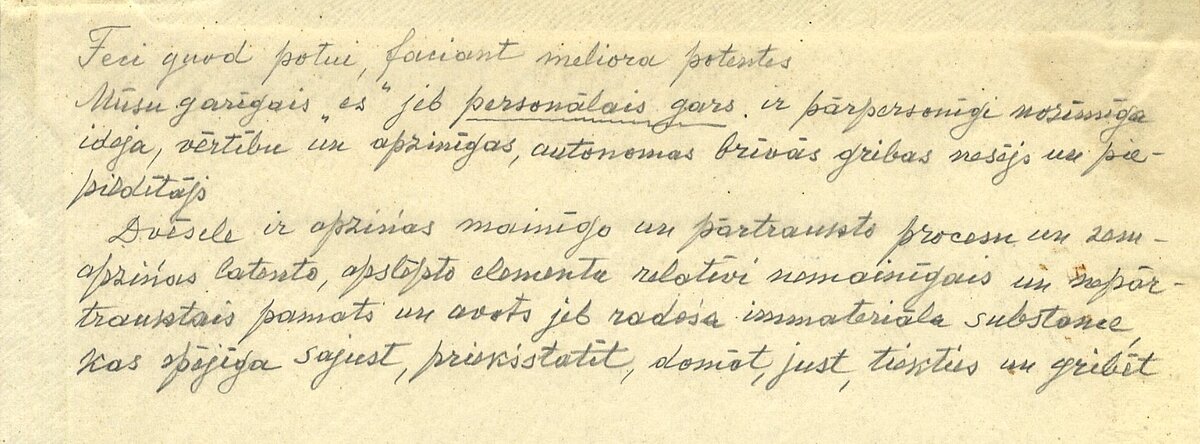 Feci quod potui, faciant meliora potentes
Mūsu garīgais "es" jeb personālais gars ir pārpersonīgi nozīmīga
ideja, vērtību un apzinīgas, autonomas brīvās gribas nesējs un pie-
pildītājs
Dvēsele ir apziņas mainīgo un pārtraukto procesu un zem-
apziņas latento, apslēpto elementu relatīvi nemainīgais un nepār-
trauktais pamats un avots jeb radoša immateriāla substance,
kas spējīga sajust, priekšstatīt, domāt, just, tiekties un gribēt